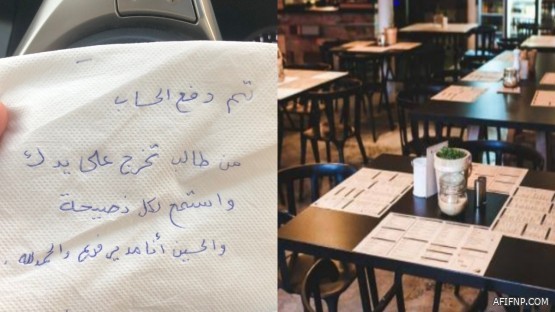 تم دفع الحساب
من طالب تخرج على يدك
واستمع لكل نصيحة
والحين أنا مدير فرع والحمدلله .
AFIFNP.COM